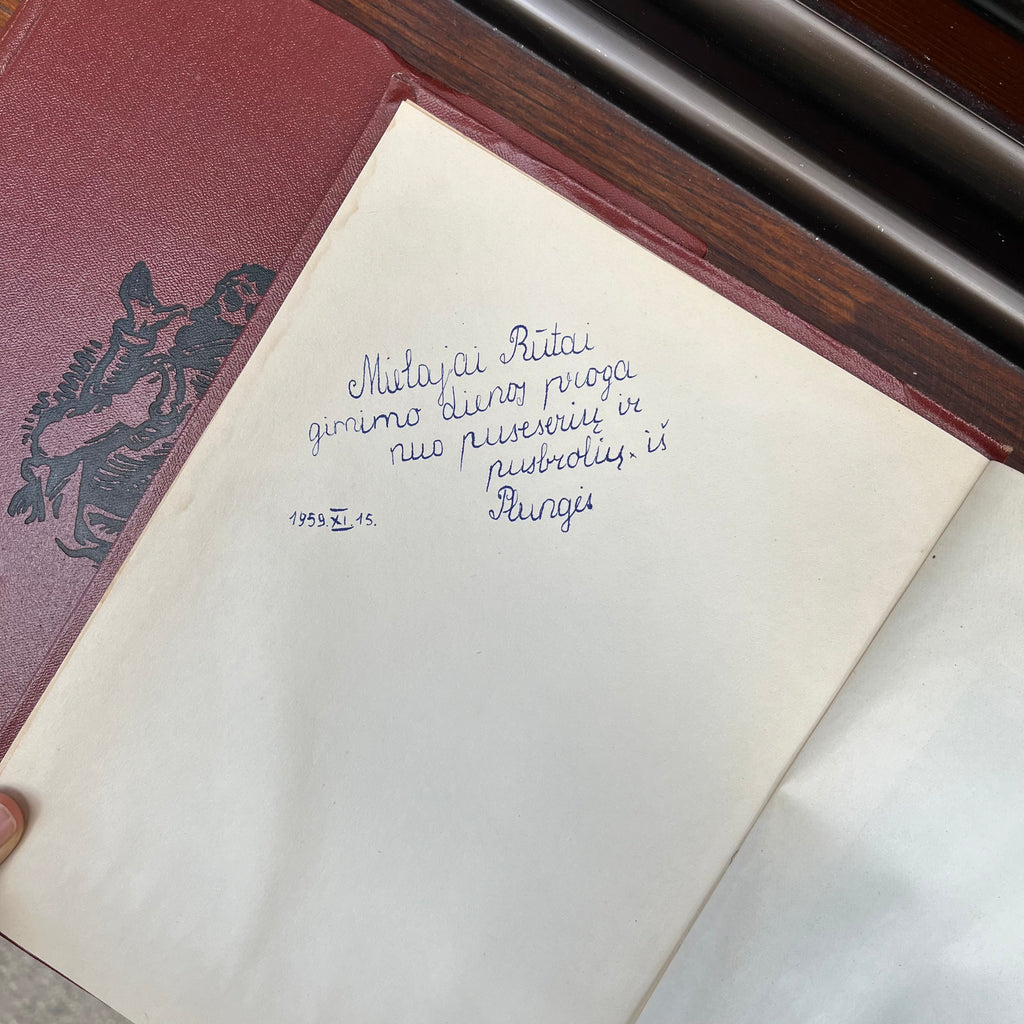 Mielajai Rūtai
gimimo dienos proga
nuo puseserių ir
pusbrolių iš
Plungės
1959.XI.15.